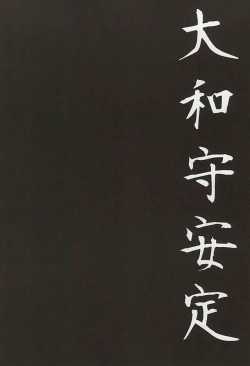 大和守安定